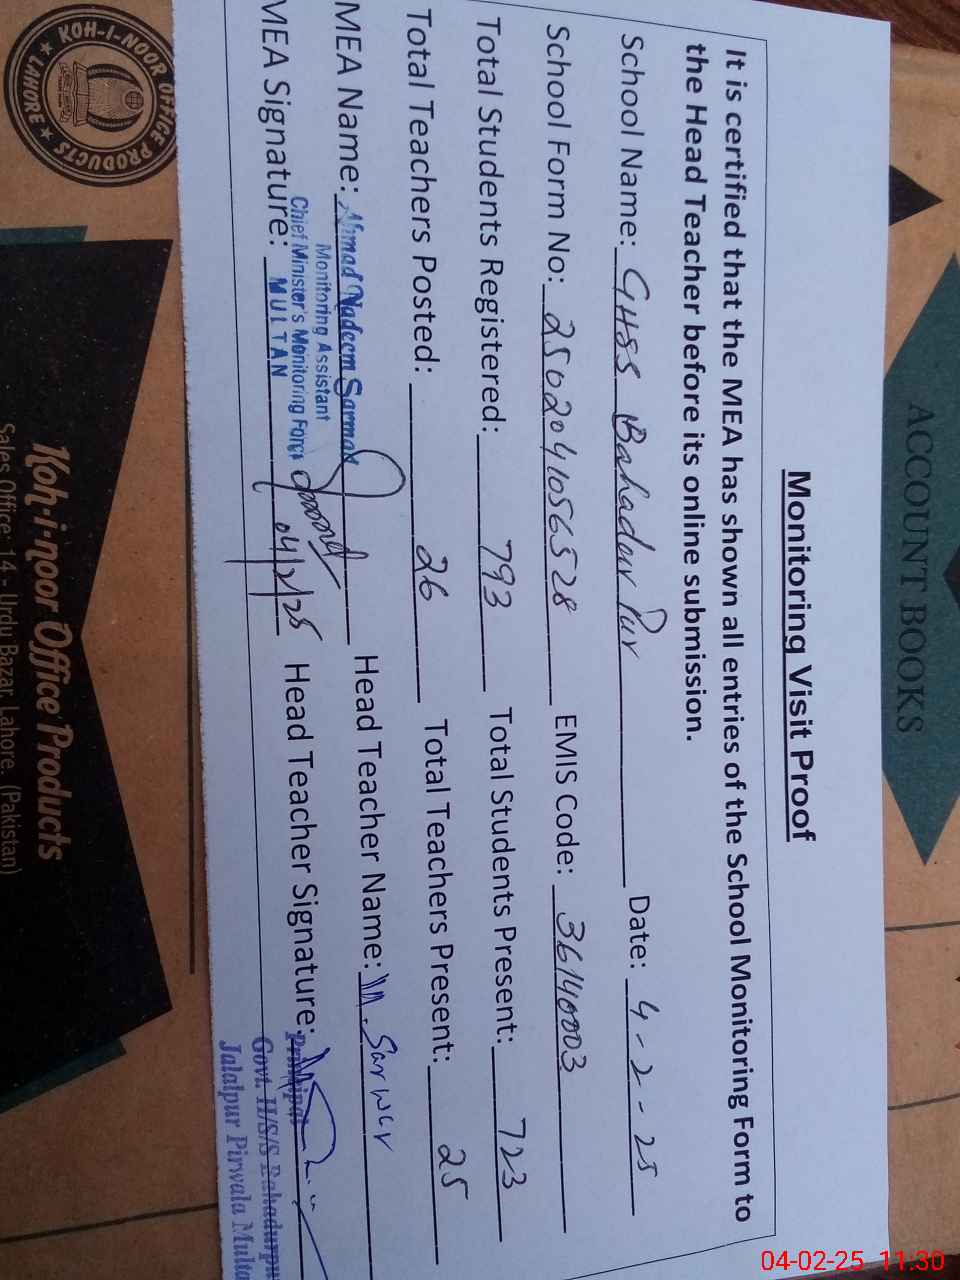 Monitoring Visit Proof
It is certified that the MEA has shown all entries of the School Monitoring Form to
the Head Teacher before its online submission.
School Name: GHSS Bahadur Pur Date: 4-2-25
School Form No: 2502041056528 EMIS Code: 36140003
Total Students Registered: 793 Total Students Present: 723
Total Teachers Posted: 26 Total Teachers Present: 25
MEA Name: Ahmad Nadeem Sarmad Head Teacher Name: M. Sarwar
Monitoring Assistant
Chief Minister's Monitoring Force
MULTAN
MEA Signature: 04/2/25 Head Teacher Signature:
Principal
Govt. H/S/S Bahadurpu
Jalalpur Pirwala Multa
ACCOUNT BOOKS
KOH-I-NOOR OFFICE PRODUCTS
★ LAHORE ★
Koh-i-noor Office Products
Sales Office: 14 - Urdu Bazar, Lahore. (Pakistan)
04-02-25 11:30